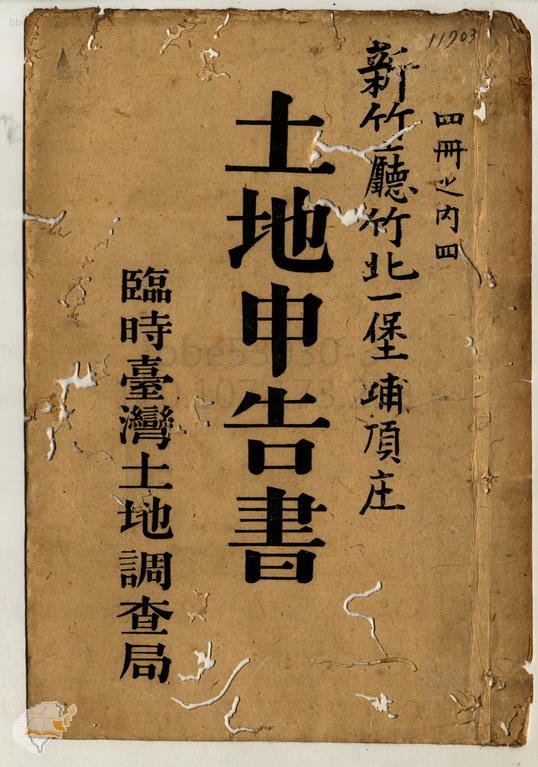 11703
四冊之内四
新竹廳竹北一堡埔頂庄
土地申告書
臨時臺灣土地調查局